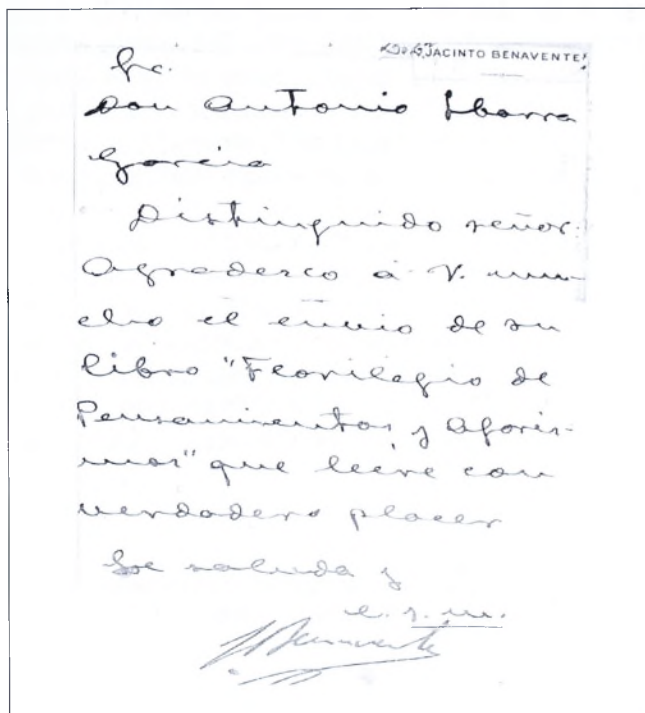 JACINTO BENAVENTE
Sr.
Don Antonio Ibarra
Garcia
Distinguido señor:
Agradezco á V. mu-
cho el envio de su
libro "Florilegio de
Pensamientos y Aforis-
mos" que leeré con
verdadero placer
Le saluda y
e. s. m.
J Benavente